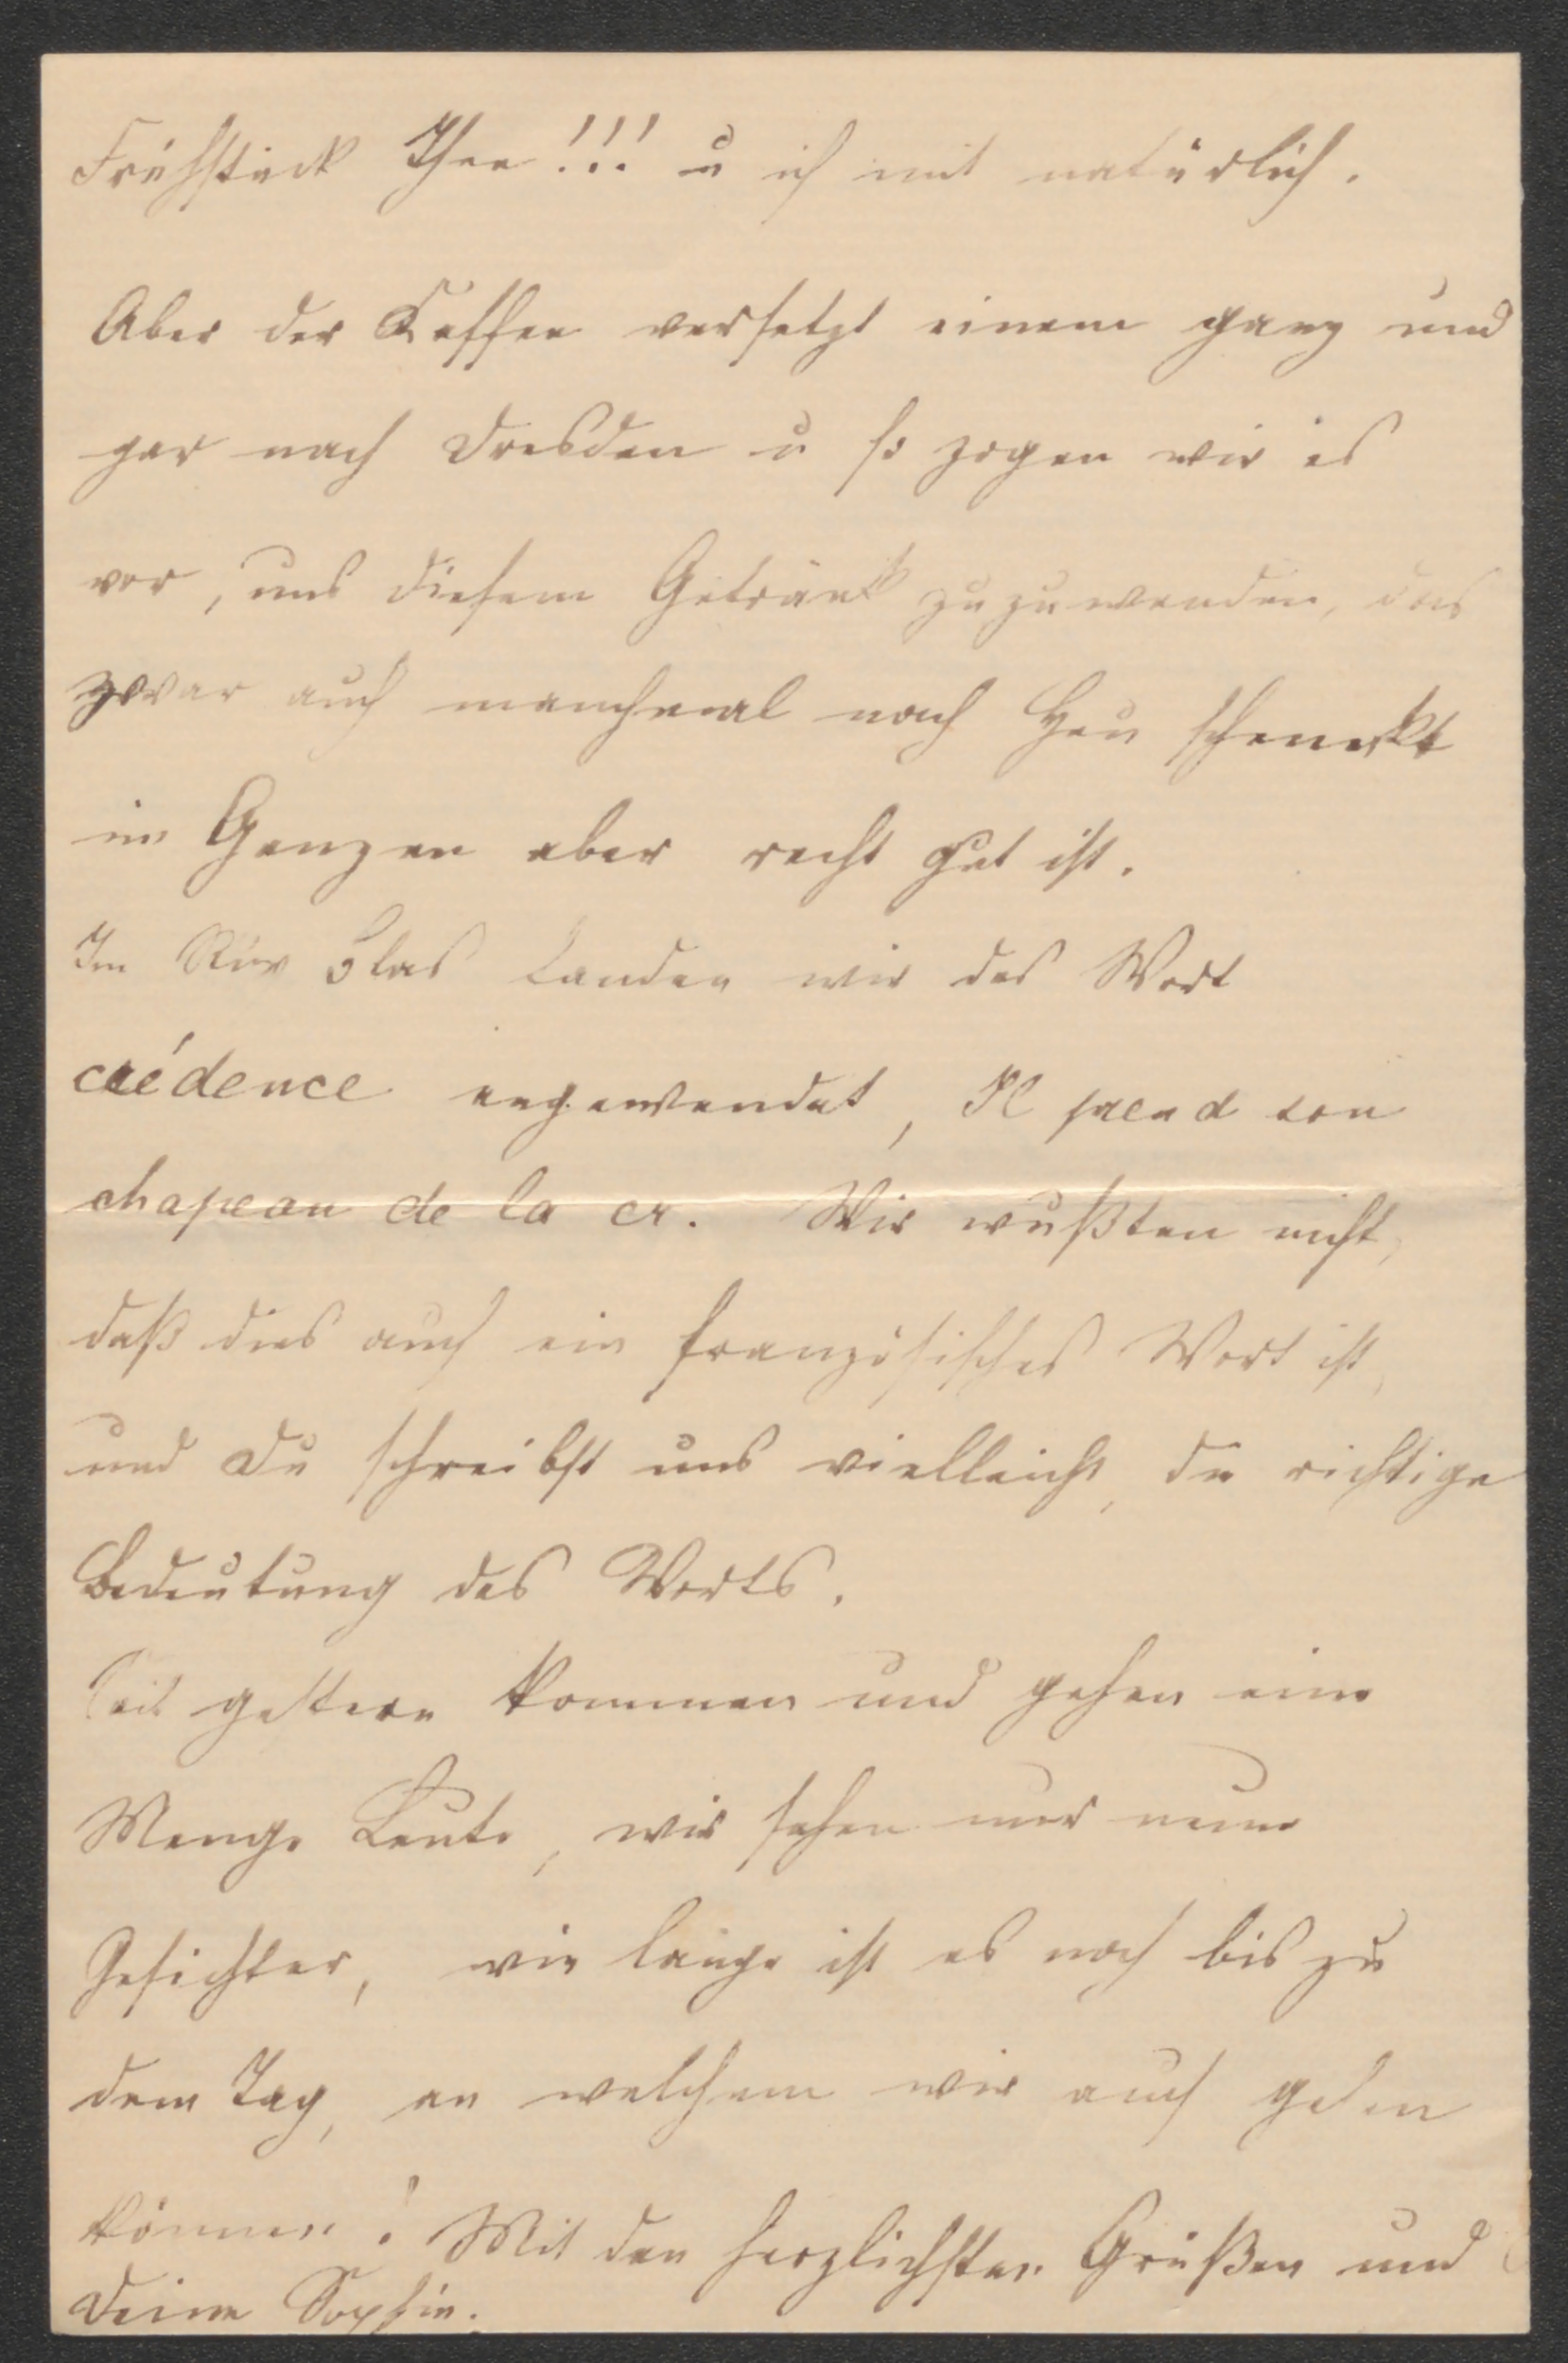 Frühstück Thee!!! u ich mit natürlich.
Aber der Kaffee versetzt einem ganz und
gar nach Dresden u so zogen wir es
vor, uns diesem Getränk zuzuwenden, das
zwar auch manchmal nach Heu schmekt
im Ganzen aber recht gut ist.
Im Ruy Blas fanden wir das Wort
crédence angewendet, Il prend son
chapeau de la cr. Wir wußten nicht,
daß dies auch ein französisches Wort ist,
und Du schreibst uns vielleicht, die richtige
Bedeutung des Worts.
Seit gestern kommen und gehen eine
Menge Leute, wir sehen nur neue
Gesichter, wie lange ist es noch bis zu
dem Tag, an welchem wir auch gehen
können! Mit den herzlichsten Grüßen und
Deine Sophie.